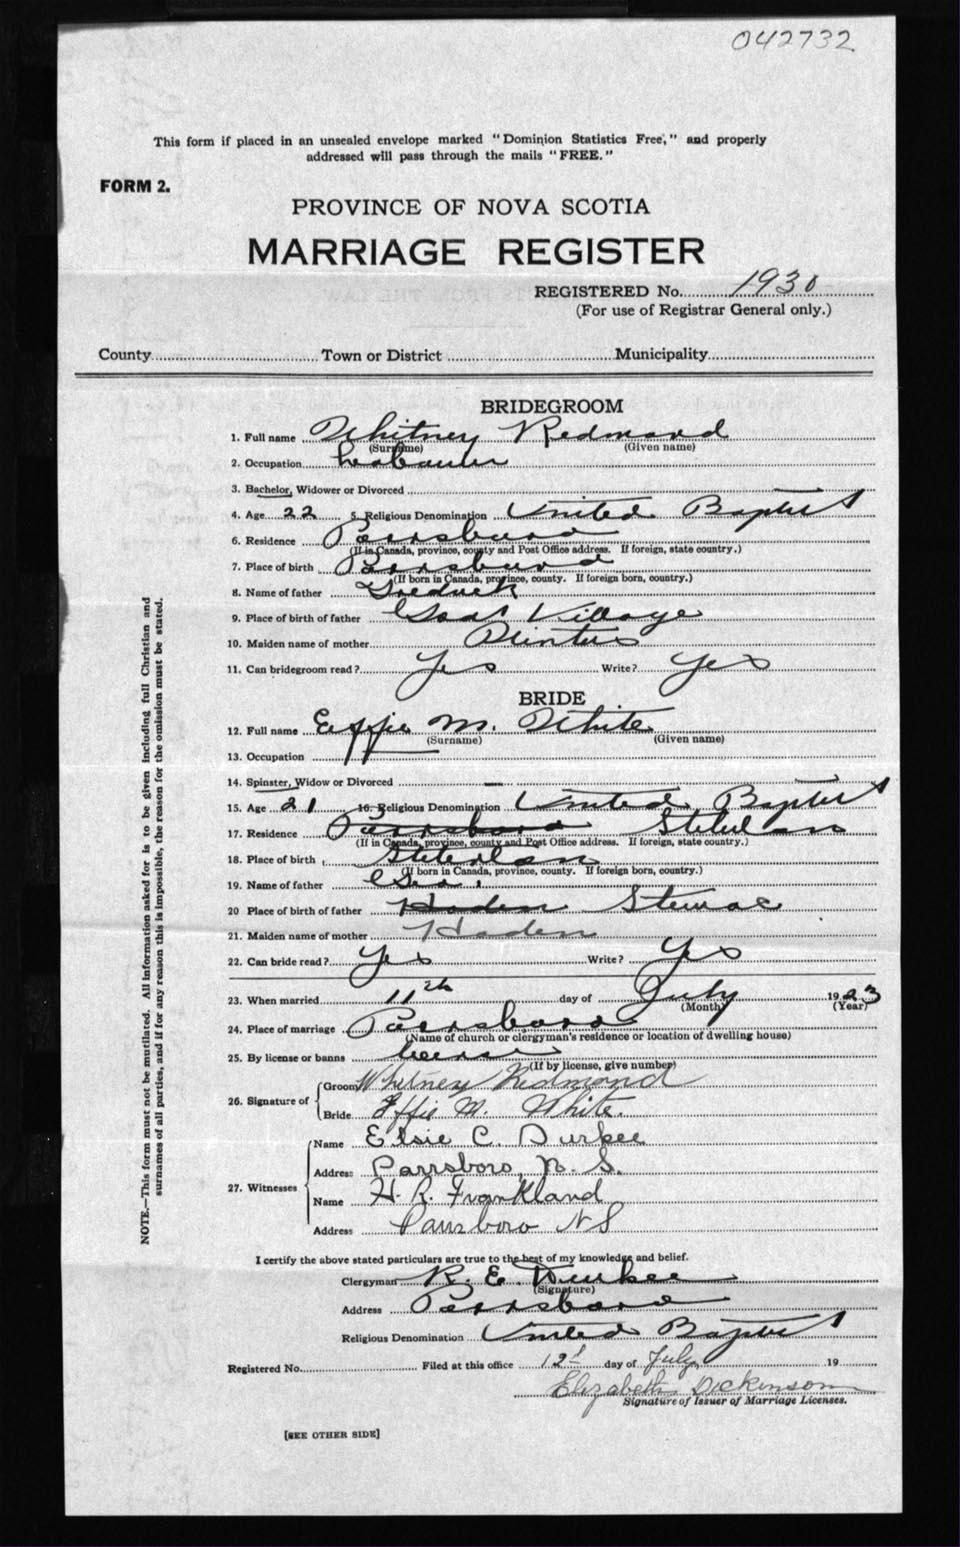 042732
This form if placed in an unsealed envelope marked "Dominion Statistics Free," and properly
addressed will pass through the mails "FREE."
FORM 2.
PROVINCE OF NOVA SCOTIA
MARRIAGE REGISTER
REGISTERED No. 1930
(For use of Registrar General only.)
County Town or District Municipality
BRIDEGROOM
1. Full name Whitney Redmond
(Surname) (Given name)
2. Occupation
3. Bachelor, Widower or Divorced
4. Age 22 5. Religious Denomination United Baptist
6. Residence Parrsboro
(If in Canada, province, county and Post Office address. If foreign, state country.)
7. Place of birth Parrsboro
(If born in Canada, province, county. If foreign born, country.)
8. Name of father
9. Place of birth of father Village
10. Maiden name of mother
11. Can bridegroom read? Yes Write? Yes
BRIDE
12. Full name Effie M. White
(Surname) (Given name)
13. Occupation
14. Spinster, Widow or Divorced —
15. Age 21 16. Religious Denomination United Baptist
17. Residence Parrsboro
(If in Canada, province, county and Post Office address. If foreign, state country.)
18. Place of birth
(If born in Canada, province, county. If foreign born, country.)
19. Name of father Geo.
20 Place of birth of father Haden
21. Maiden name of mother Haden
22. Can bride read? Yes Write? Yes
23. When married 11th day of July 1923
(Month) (Year)
24. Place of marriage Parrsboro
(Name of church or clergyman's residence or location of dwelling house)
25. By license or banns License
(If by license, give number)
26. Signature of
Groom Whitney Redmond
Bride Effie M. White.
27. Witnesses
Name Elsie C. Durkee
Address Parrsboro, N. S.
Name H. R. Frankland
Address Parrsboro NS
I certify the above stated particulars are true to the best of my knowledge and belief.
Clergyman R. E. Durkee
(Signature)
Address Parrsboro
Religious Denomination United Baptist
Registered No. Filed at this office 12 day of July 19
Elizabeth Dickinson
Signature of Issuer of Marriage Licenses.
[SEE OTHER SIDE]
NOTE.—This form must not be mutilated. All information asked for is to be given including full Christian and
surnames of all parties, and if for any reason this is impossible, the reason for the omission must be stated.